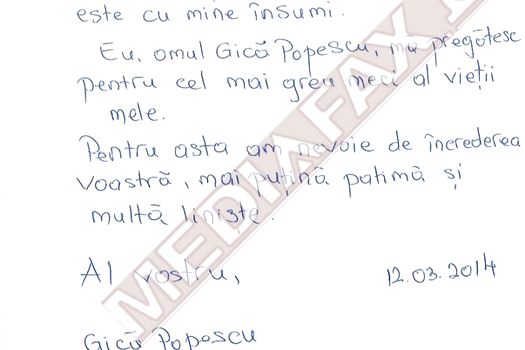 este cu mine însumi.
Eu, omul Gică Popescu, mă pregătesc
pentru cel mai greu meci al vieții
mele.
Pentru asta am nevoie de încrederea
voastră, mai puțină patimă și
multă liniște.
Al vostru,
12.03.2014
Gică Popescu
MEDIAFAX